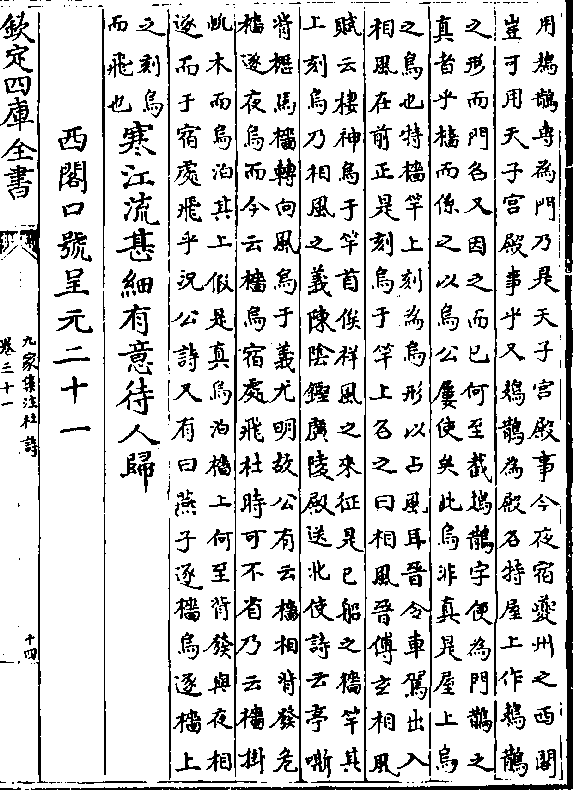 用鳷鵲専為門乃是天子宫殿事今夜宿夔州之西閣
豈可用天子宫殿事乎又鳷鵲為殿名特屋上作鳷鵲
之形而門名又因之而已何至截鳷鵲字便為門鵲之
真者乎檣而係之以烏公屢使矣此烏非真是屋上烏
之烏也特檣竿上刻為烏形以占風耳晉令車駕出入
相風在前正是刻烏于竿上名之曰相風晉傅玄相風
賦云棲神烏于竿首俟祥風之來征是已船之檣竿其
上刻烏乃相風之義陳陰鏗廣陵殿送北使詩云亭嘶
背櫪馬檣轉向風烏于義尤明故公有云檣相背發危
檣逐夜烏而今云檣烏宿處飛杜時可不省乃云檣掛
帆木而烏泊其上假是真烏泊檣上何至背發與夜相
逐而于宿處飛乎況公詩又有曰燕子逐檣烏逐檣上
之刻烏
而飛也
寒江流甚細有意待人歸
西閣口號呈元二十一
欽定四庫全書
九家集注杜詩
卷三十一
十四